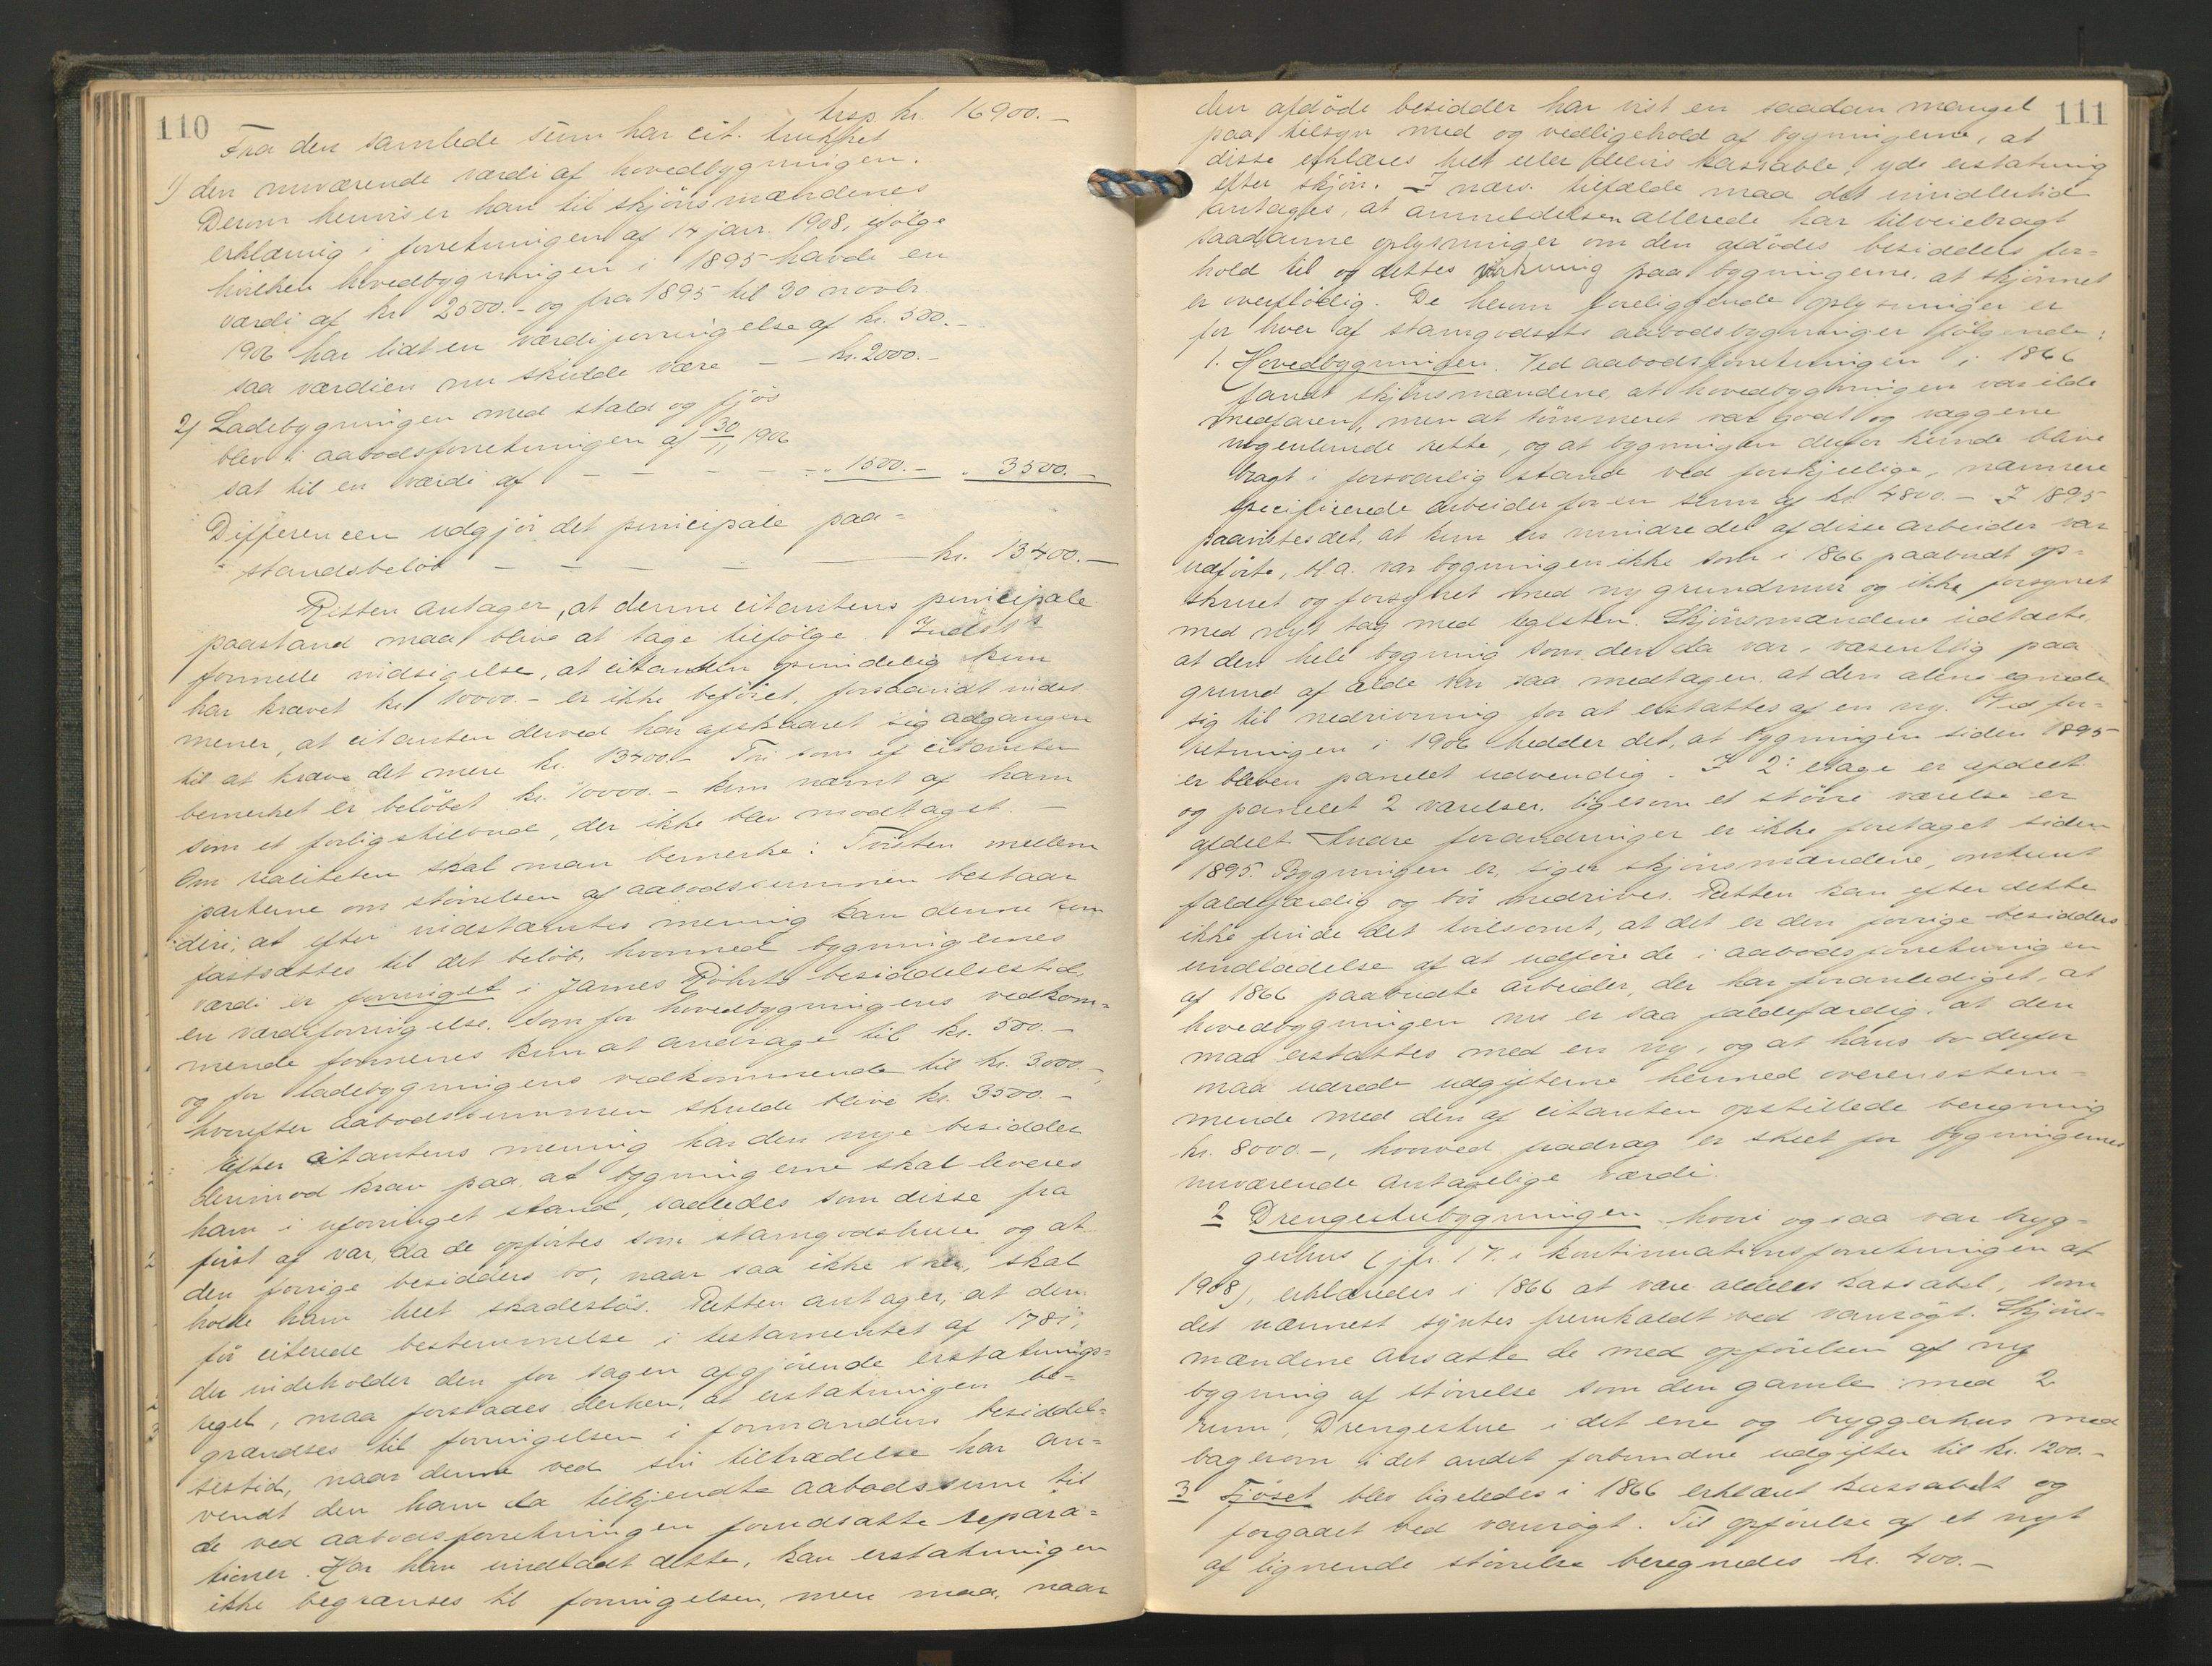 110
trsp. kr. 16900.-
Fra den samlede sum har cit. trukket
1) den nuværende værdi af hovedbygningen.
Derom henviser han til skjönsmændenes
erklæring i forretningen af 17 janr. 1908, ifølge
hvilken hovedbygningen i 1895 havde en
værdi af kr. 2500.- og fra 1895 til 30 novbr.
1906 har lidt en værdiforringelse af kr. 500.-
saa værdien nu skulde være - - kr. 2000.-
2) Ladebygningen med stald og fjös
blev i aabodsforretningen af 30/11 1906
sat til en værdi af - - - - - - „ 1500.- „ 3500.-
Differencen udgjör det principale paa=
standsbelöb - - - - - kr. 13400.-
Retten antager, at denne citantens principale
paastand maa blive at tage tilfölge. Indst.s
formelle indsigelse, at citanten oprindelig kun
har krævet kr. 10000.- er ikke beföiet, forsaavidt indst.
mener, at citanten derved har afskaaret sig adgangen
til at kræve det mere kr. 13400.- Thi som af citanten
bemerket er belöbet kr. 10000.- kun nævnt af ham
som et forligstilbud, der ikke blev modtaget.-
Om realiteten skal man bemerke: Tvisten mellem
parterne om störrelsen af aabodssummen bestaar
deri, at efter indstævntes mening kan denne kun
fastsættes til det belöb, hvormed bygningernes
værdi er forringet i James Röhrts besiddelsestid,
en værdiforringelse, som for hovedbygningens vedkom=
mende formenes kun at andrage til kr. 500.-
og for ladebygningens vedkommende til kr. 3000.-,
hvorefter aabodssummen skulde blive kr. 3500.-
Efter citantens mening har den nye besidder
derimod krav paa at bygningerne skal leveres
ham i uforringet stand, saaledes som disse fra
först af var, da de opförtes som stamgodshuse og at
den forrige besidders bo, naar saa ikke sker, skal
holde ham helt skadeslös. Retten antager, at den
för citerede bestemmelse i testamentet af 1781,
der indeholder den for sagen afgjörende erstatnings=
regel, maa forstaaes derhen, at erstatningen be=
grændses til forringelsen i formandens besiddel=
sestid, naar denne ved sin tiltrædelse har an=
vendt den ham da tilkjendte aabodssum til
de ved aabodsforretningen forudsatte repara=
tioner. Har han undladt dette, kan erstatningen
ikke begrænses til forringelsen, men maa, naar
111
den afdöde besidder har vist en saadan mangel
paa tilsyn med og vedligehold af bygningerne, at
disse erklæres helt eller delvis kassable, yde erstatning
efter skjön. - I nærv. tilfælde maa det imidlertid
antages, at anmeldelsen allerede har tilveiebragt
saadanne oplysninger om den afdödes besidders for=
hold til og dettes virkning paa bygningerne, at skjönnet
er overflödig. De herom foreliggende oplysninger er
for hver af stamgodsets aabodsbygninger fölgende:
1. Hovedbygningen. Ved aabodsforretningen i 1866
fandt skjönsmændene, at hovedbygningen var ilde
medfaren, men at tömmeret var godt og væggene
nogenlunde rette, og at bygningen derfor kunde blive
bragt i forsvarlig stand ved forskjellige, nærmere
specificerede arbeider for en sum af kr. 4800.- I 1895
paavistes det, at kun en mindre del af disse arbeider var
udförte, bl.a. var bygningen ikke som i 1866 paabudt op=
skruet og forsynet med ny grundmur og ikke forsynet
med nyt tag med taglsten. Skjönsmændene udtalte,
at den hele bygning som den da var, væsentlig paa
grund af ælde var saa medtagen, at den alene egnede
sig til nedrivning for at erstattes af en ny. Ved for=
retningen i 1906 hedder det, at bygningen siden 1895
er bleven panelet udvendig. I 2: etage er afdelt
og panelet 2 værelser, ligesom et större værelse er
afdelt. Andre forandringer er ikke foretaget siden
1895. Bygningen er, siger skjönsmændene, omtrent
faldefærdig og bör nedrives. Retten kan efter dette
ikke finde det tvilsomt, at det er den forrige besidders
undladelse af at udföre de i aabodsforretningen
af 1866 paabudte arbeider, der har foranlediget, at
hovedbygningen nu er saa faldefærdig, at den
maa erstattes med en ny, og at hans bo derfor
maa udrede udgifterne hermed overensstem=
mende med den af citanten opstillede beregning
kr. 8000.-, hvorved fradrag er skeet for bygningernes
nuværende antagelige værdi.
2 Drengestubygningen hvori ogsaa var bryg=
gerhus (jfr. 17. i kontinuationsforretningen af
1908), erklæredes i 1866 at være aldeles kassabel, som
det nærmest syntes fremkaldt ved vanrögt. Skjöns=
mændene ansatte de med opförelsen af ny
bygning af störrelse som den gamle med 2
rum, Drengestue i det ene og bryggerhus med
bagerovn i det andet forbundne udgifter til kr. 1200.-
3 Fjöset blev ligeledes i 1866 erklæret kassabelt og
forgaaet ved vanrögt. Til opförelse af et nyt
af lignende störrelse beregnedes kr. 400.-